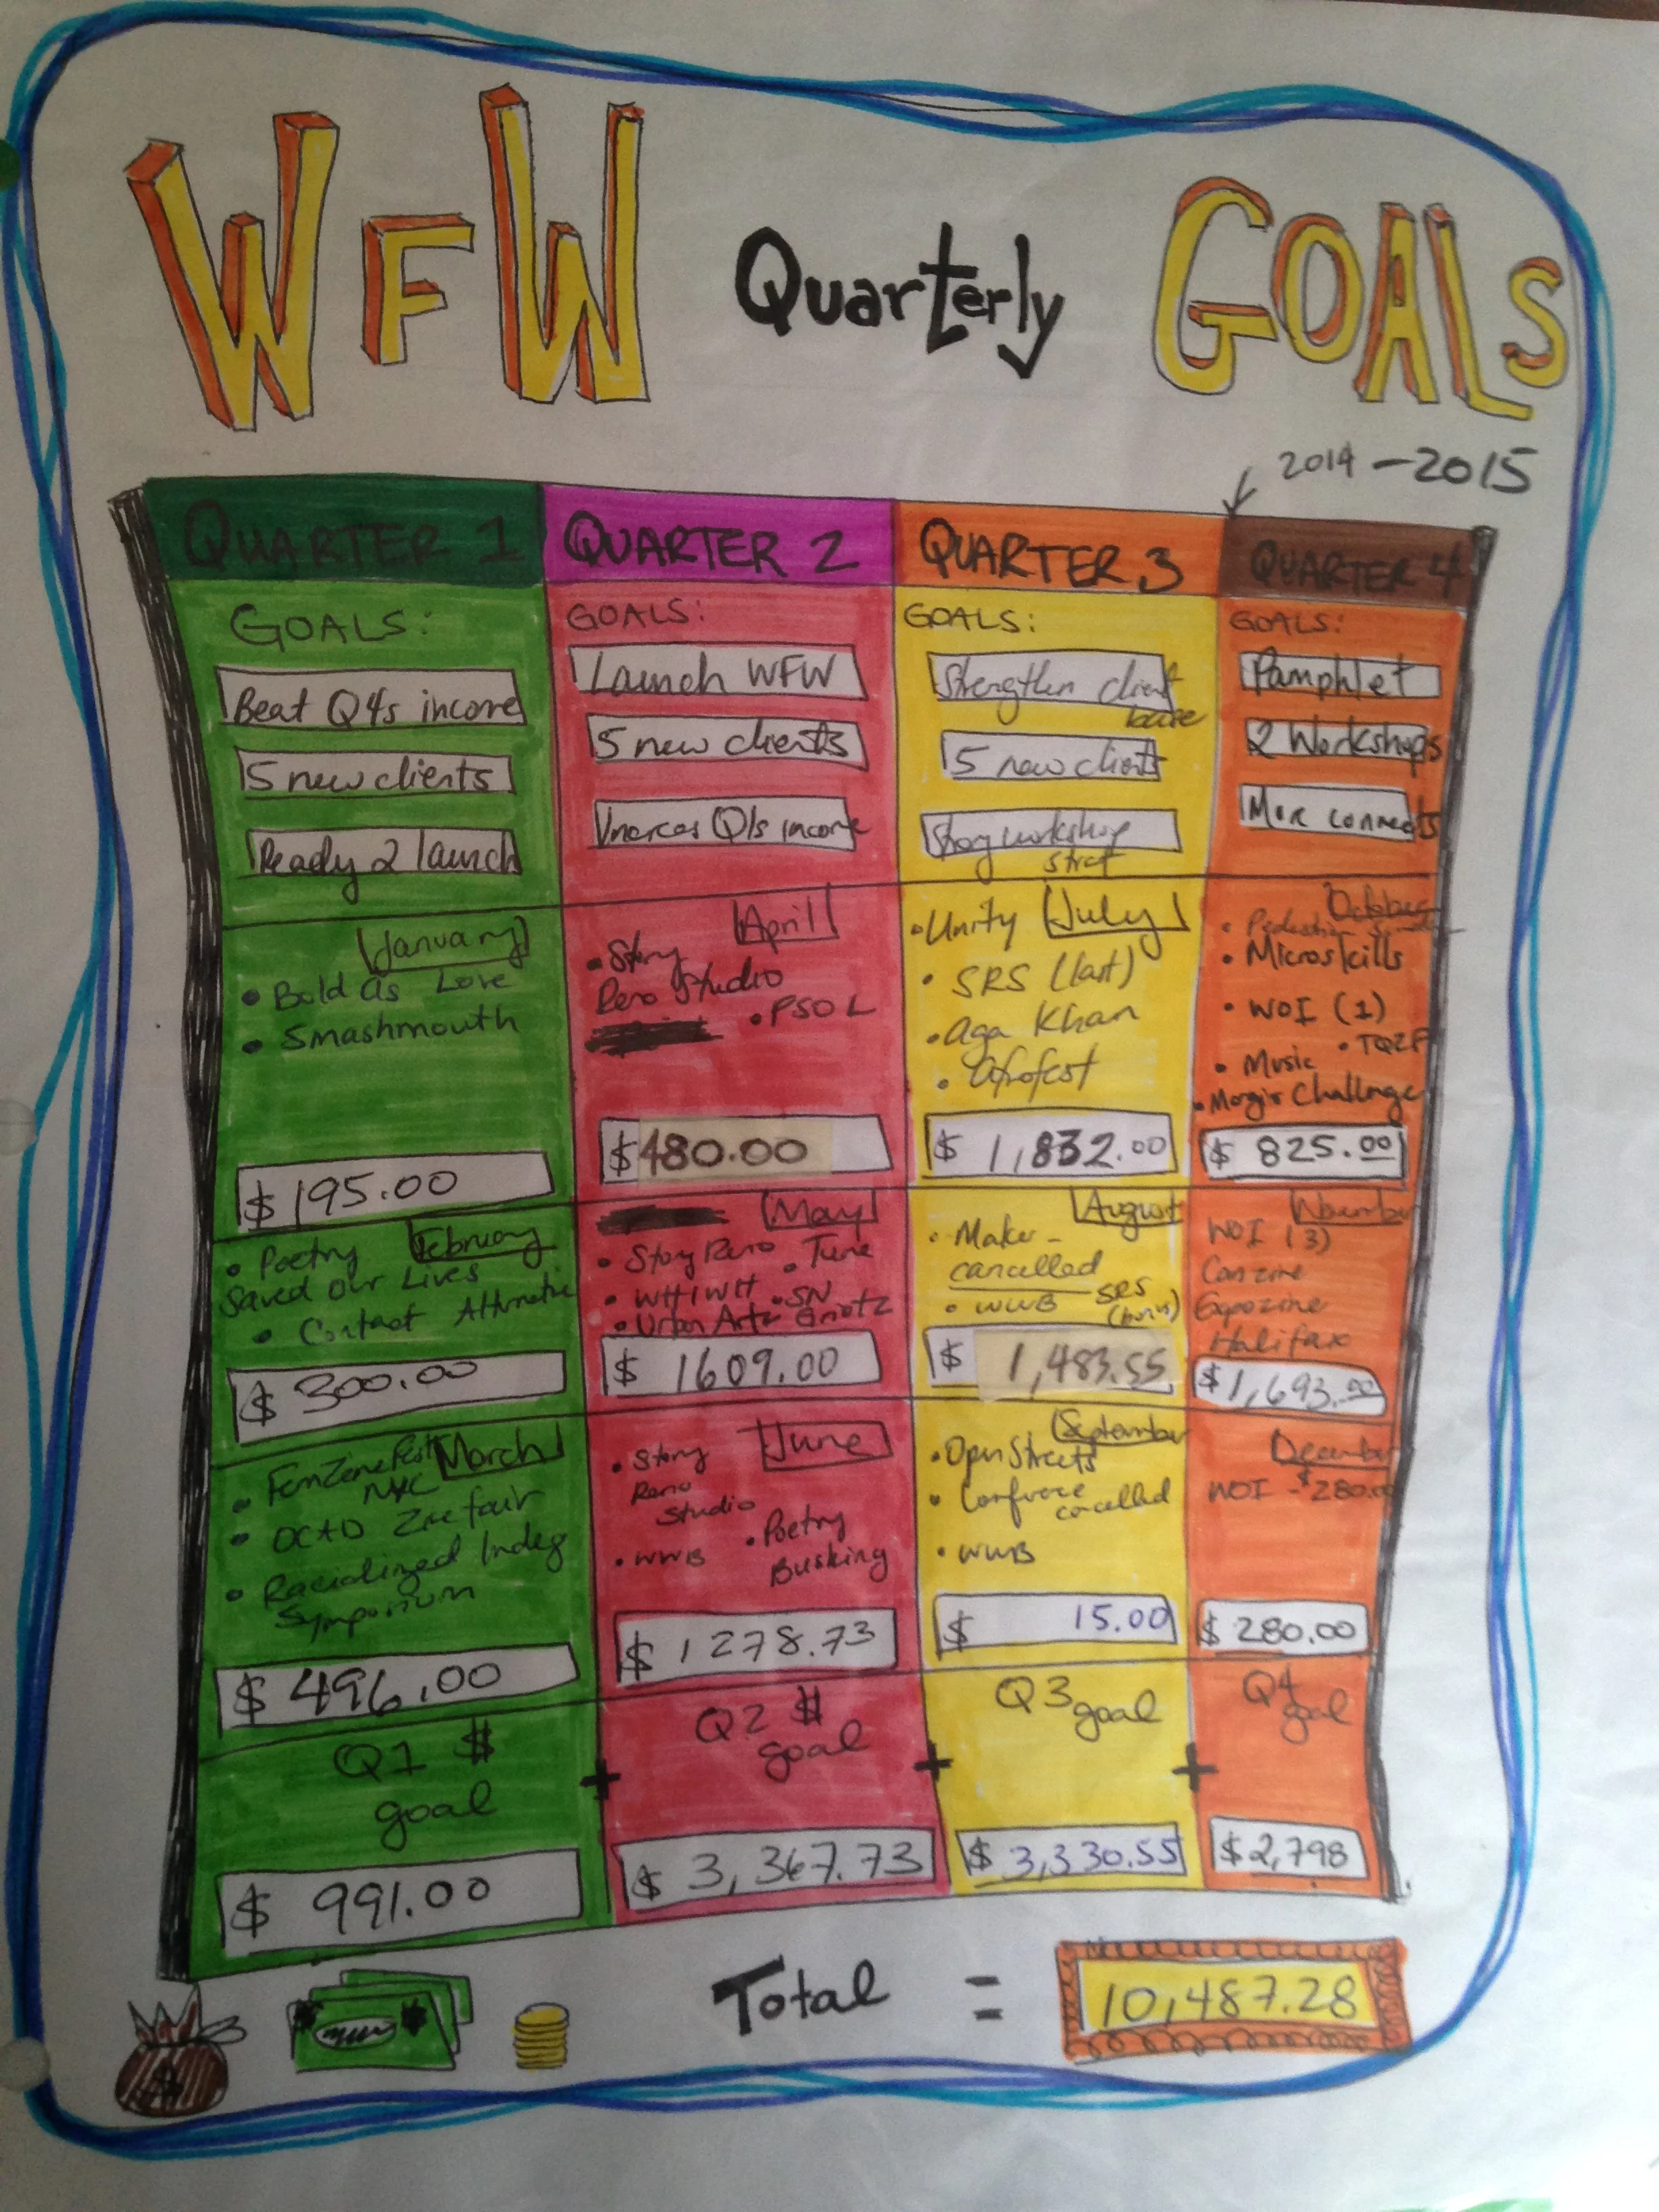 WFW Quarterly GOALS
2014-2015
QUARTER 1
GOALS:
Beat Q4s income
5 new clients
Ready 2 launch
January
• Bold As Love
• Smashmouth
$195.00
February
• Poetry
Saved Our Lives
• Contact
$300.00
March
• FemZineFest
NYC
• OCAD Zine fair
• Racialized Indeg
Symposium
$496.00
Q1 $
goal
$991.00
QUARTER 2
GOALS:
Launch WFW
5 new clients
Q1s income
April
• Story
Reno Studio
• PSOL
$480.00
May
• Story Reno • Tune
• WH1WH • SN
• Urban Arts Griotz
$1609.00
June
• Story
Reno
Studio
• WWB • Poetry
Busking
$1278.73
Q2 $
goal
$3,367.73
QUARTER 3
GOALS:
Strengthen client
base
5 new clients
workshop
strat
July
• Unity
• SRS (last)
• Aga Khan
• Afrofest
$1,832.00
August
• Maker -
cancelled
• WWB SRS
$1,483.55
September
• Open Streets
• Confrence
cancelled
• WWB
$15.00
Q3 goal
$3,330.55
QUARTER 4
GOALS:
Pamphlet
2 Workshops
More connects
October
• Microskills
• WOI (1)
• Music
• Challenge
$825.00
November
WOI (3)
Canzine
Expozine
Halifax
$1,693.00
December
WOI - $280.00
$280.00
Q4
goal
$2,798
+ + +
Total = 10,487.28